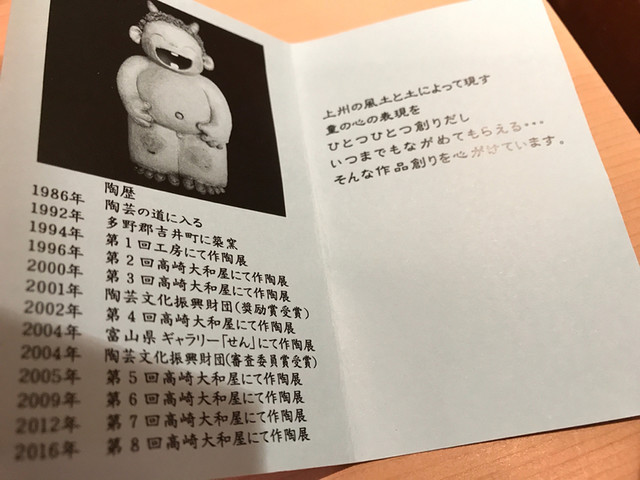 陶歴
1986年 陶芸の道に入る
1992年 多野郡吉井町に築窯
1994年 第1回工房にて作陶展
1996年 第2回高崎大和屋にて作陶展
2000年 第3回高崎大和屋にて作陶展
2001年 陶芸文化振興財団(奨励賞受賞)
2002年 第4回高崎大和屋にて作陶展
2004年 富山県ギャラリー「せん」にて作陶展
2004年 陶芸文化振興財団(審査委員賞受賞)
2005年 第5回高崎大和屋にて作陶展
2009年 第6回高崎大和屋にて作陶展
2012年 第7回高崎大和屋にて作陶展
2016年 第8回高崎大和屋にて作陶展
上州の風土と土によって現す
童の心の表現を
ひとつひとつ創りだし
いつまでもながめてもらえる・・・
そんな作品創りを心がけています。